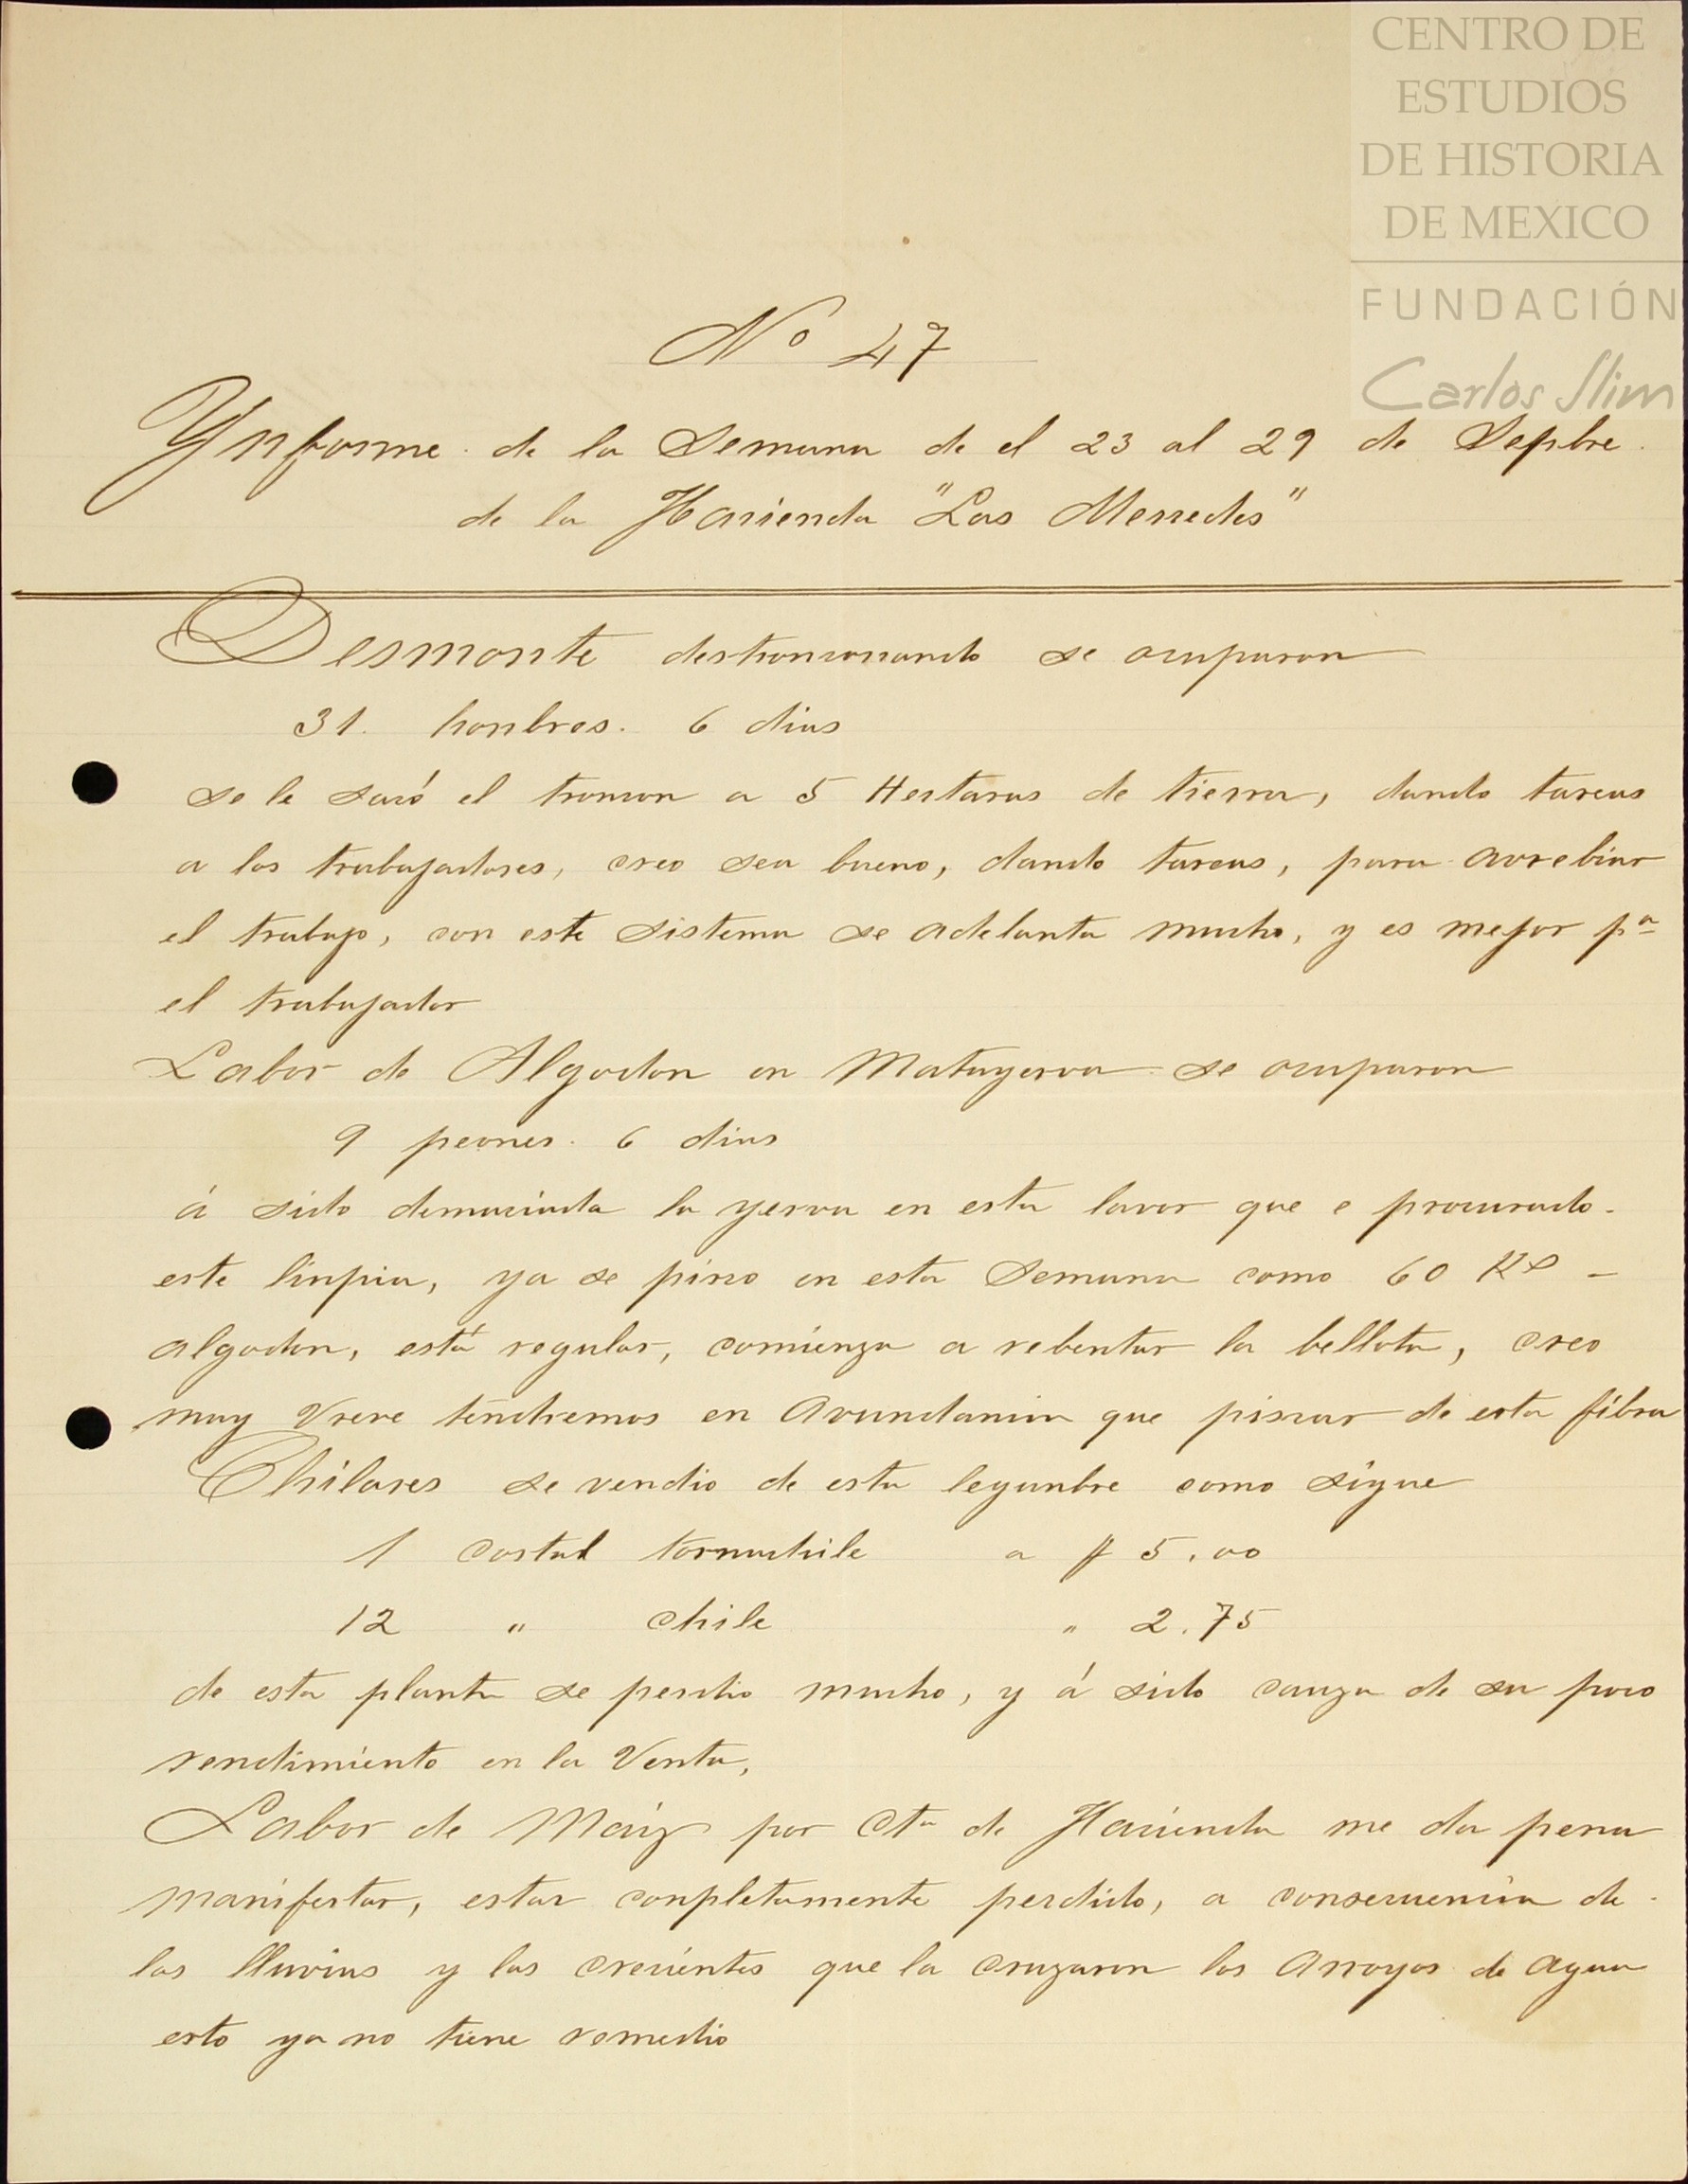 CENTRO DE
ESTUDIOS
DE HISTORIA
DE MEXICO
FUNDACIÓN
Carlos Slim
No 47
Ynforme de la Semana de el 23 al 29 de Sepbre.
de la Hacienda "Las Mercedes"
Desmonte destronconando se ocuparon
31. honbres. 6 dias
se le sacó el troncon a 5 Hectaras de tierra, dando tareas
a los trabajadores, creo sea bueno, dando tareas, para avrebiar
el trabajo, con este sistema se adelanta mucho, y es mejor pa
el trabajador
Labor de Algodon en Matayerva se ocuparon
9 peones. 6 dias
á sido demaciada la yerva en esta lavor que e procurado.
este linpia, ya se pisco en esta Semana como 60 Ks -
algodon, está regular, comienza a rebentar la bellota, creo
muy Vreve tendremos en Avundancia que piscar de esta fibra
Chilares se vendio de esta legunbre como sigue
1 costal tornachile a $ 5.00
12 " chile " 2.75
de esta planta se perdio mucho, y á sido cauza de su poco
rendimiento en la Venta,
Labor de Maiz por Cta de Hacienda me da pena
manifestar, estar conpletamente perdido, a consecuencia de.
las lluvias y las crecientes que la cruzaron los Arroyos de agua
esto ya no tiene remedio